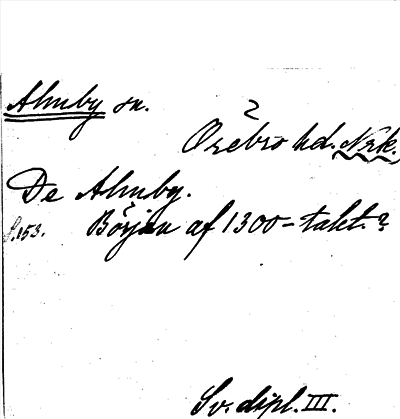 Almby sn.
Örebro hd. Nrk.
De Almby.
s. 153. Början af 1300-talet.?
Sv. dipl. III.